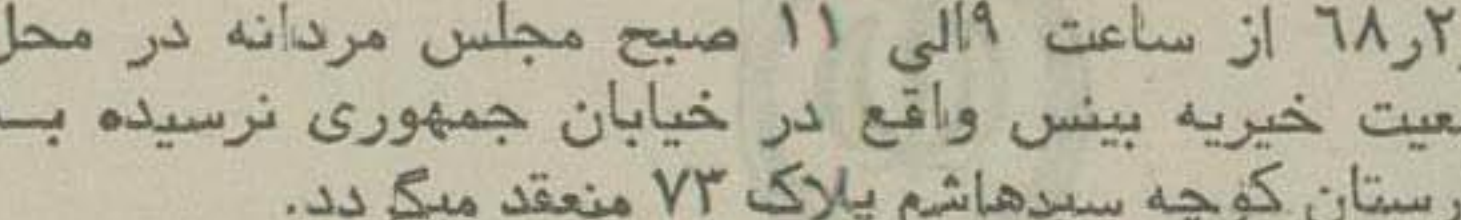 ۲ر۶۸ از ساعت ۹الی ۱۱ صبح مجلس مردانه در محل
خیریه بینش واقع در خیابان جمهوری نرسیده بـ
کوچه سیدهاشم پلاک ۷۳ منعقد میگردد.